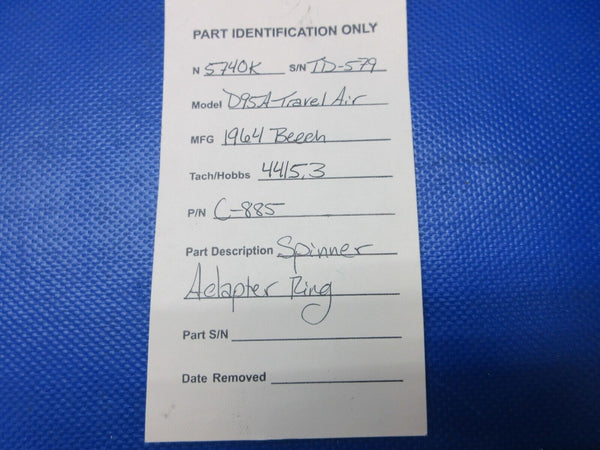 PART IDENTIFICATION ONLY
N 5740K S/N TD-579
Model D95A Travel Air
MFG 1964 Beech
Tach/Hobbs 4415.3
P/N C-885
Part Description Spinner
Adapter Ring
Part S/N
Date Removed